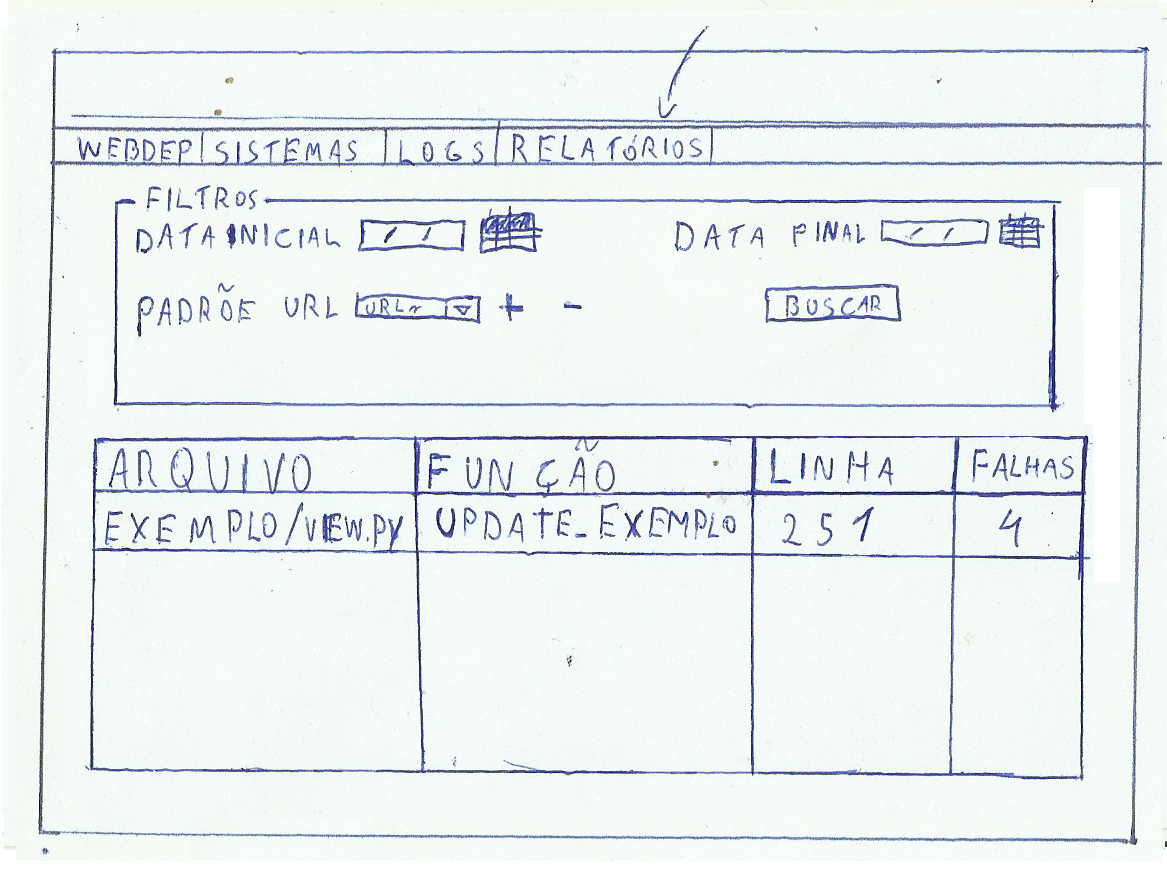 WEBDEP SISTEMAS LOGS RELATÓRIOS
FILTROS
DATA INICIAL / / DATA FINAL / /
PADRÕE URL URL~ + - BUSCAR
ARQUIVO FUNÇÃO LINHA FALHAS
EXEMPLO/VIEW.PY UPDATE_EXEMPLO 251 4